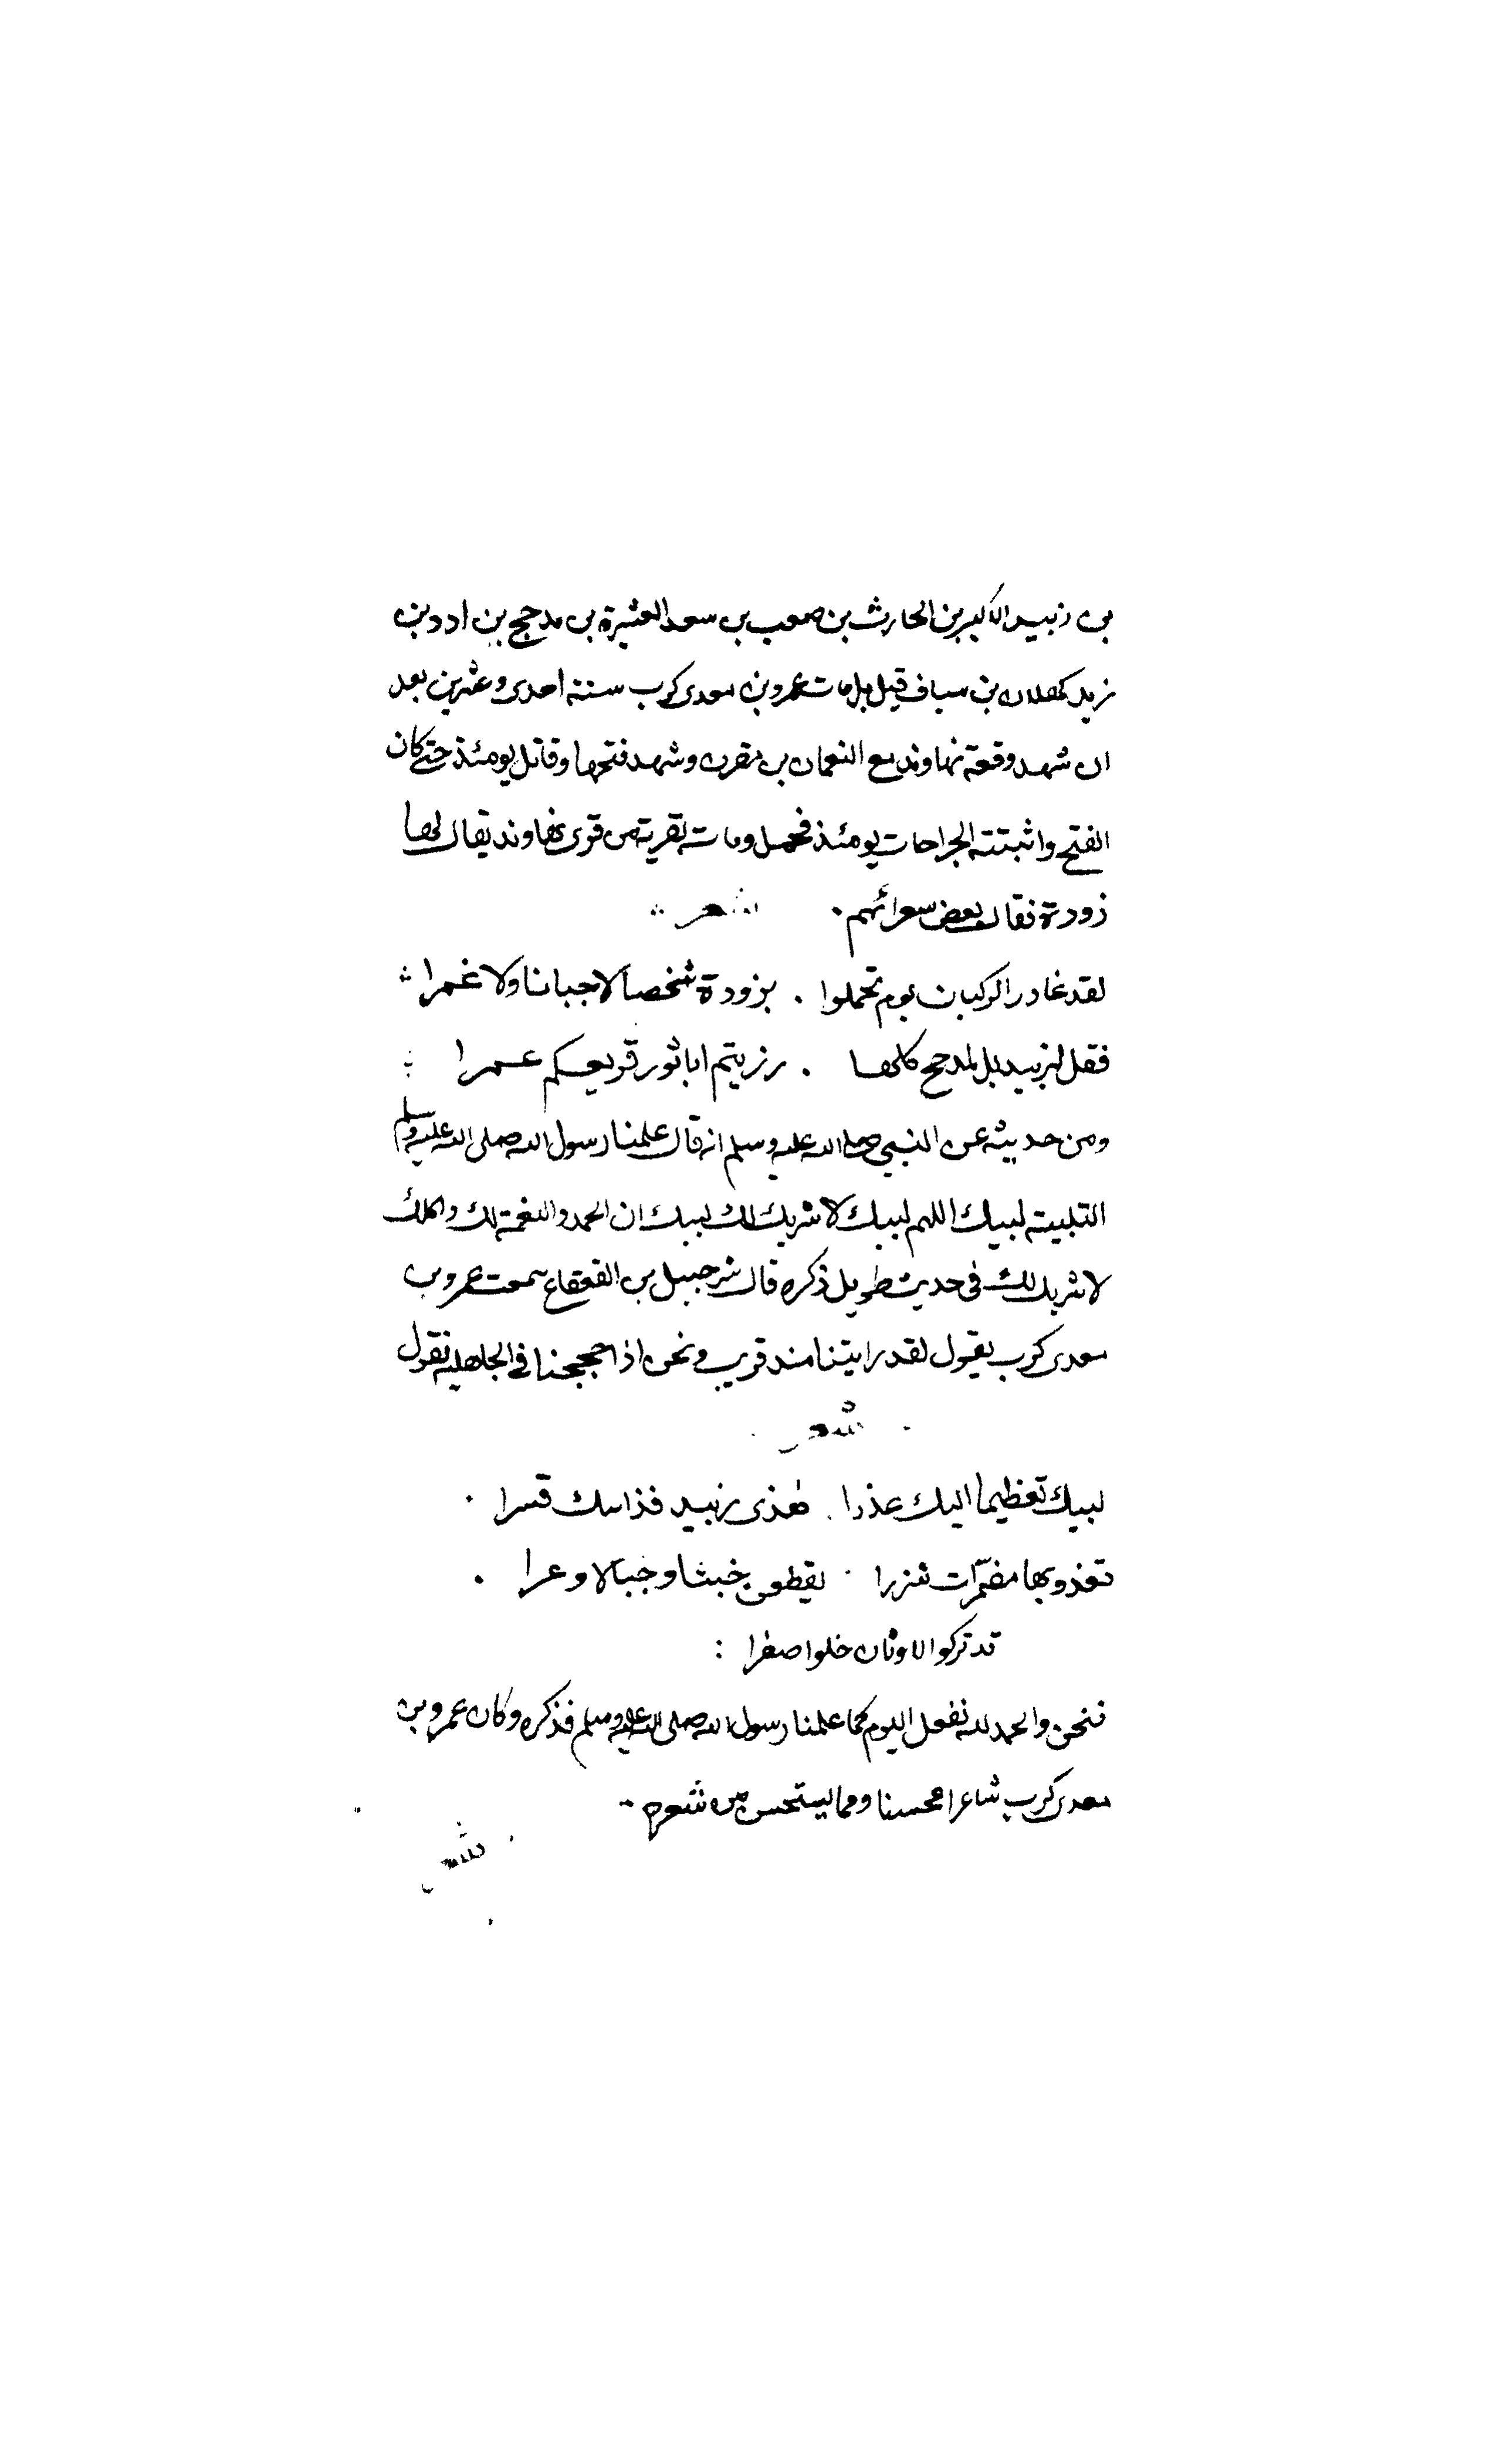 بن زبيد الاكبر بن الحارث بن صعب بن سعد العشيرة بن مدحج بن ادد بن
زيد كهلان بن سباف قيل بل مات عمرو بن معدى كرب سنة احدى وعشرين بعد
ان شهد وقعة نهاوند مع النعمان بن مقرن وشهد فتحها وقاتل يومئذ حتى كان
الفتح واثبتته الجراحات يومئذ فحمل ومات بقرية من قرى نهاوند يقال لها
زودة فقال بعض سعرائهم . شعر
لقد غادر الركبان يوم تحملوا . بزودة شخصا لا جبانا ولا غمرا
فقل لزبيد بل لمدحج كلها . رزيتم ابا ثور قريعكم عمرا
ومن حديثه عن النبي صلى الله عليه وسلم انه قال علمنا رسول الله صلى الله عليه وسلم
التلبية لبيك اللهم لبيك لا شريك لك لبيك ان الحمد والنعمة لك والملك
لا شريك لك فى حديث طويل ذكره قال شرحبيل بن القعقاع سمعت عمرو بن
معدى كرب يقول لقد رايتنا منذ قريب ونحن اذا حججنا فى الجاهلية نقول
شعر
لبيك تعظيما اليك عذرا . هذى زبيد قد اتتك قسرا .
تغدو بها مضمّرات شزرا . يقطعن خبتا وجبالا وعرا .
قد تركوا الاوثان خلوا صفرا :
فنحن والحمد لله نفعل اليوم كما علمنا رسول الله صلى الله عليه وسلم فذكره وكان عمرو بن
معدى كرب شاعرا محسنا ومما يستحسن من شعره